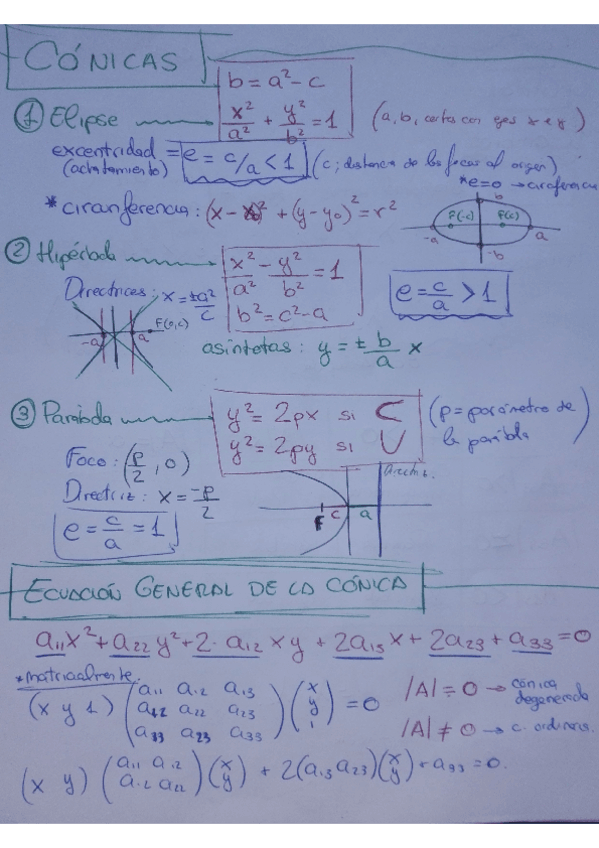 CÓNICAS
b = a² - c
① Elipse x²/a² + y²/b² = 1 (a, b, cortes con ejes x e y)
excentricidad = e = c/a < 1 (c; distancia de los focos al origen)
(achatamiento) *e=0 → circuferencia
* circunferencia: (x - x₀)² + (y - y₀)² = r²
b
F(-c) F(c)
-a a
-b
② Hipérbola x²/a² - y²/b² = 1
b² = c² - a
e = c/a > 1
Directrices: x = ±a²/c
-a a F(0,c)
asíntotas: y = ± b/a x
③ Parábola y² = 2px si ⊂
y² = 2py si ∪
(p = parámetro de la parábola)
Foco: (p/2, 0)
Directriz: x = -p/2
e = c/a = 1
directriz.
F c a
ECUACIÓN GENERAL DE LA CÓNICA
a₁₁x² + a₂₂y² + 2·a₁₂xy + 2a₁₃x + 2a₂₃ + a₃₃ = 0
*matricialmente:
(x y 1) (a₁₁ a₁₂ a₁₃
a₁₂ a₂₂ a₂₃
a₃₃ a₂₃ a₃₃) (x y 1) = 0
|A| = 0 → cónica degenerada
|A| ≠ 0 → c. ordinaria.
(x y) (a₁₁ a₁₂
a₁₂ a₂₂) (x y) + 2(a₁₃ a₂₃)(x y) + a₃₃ = 0.